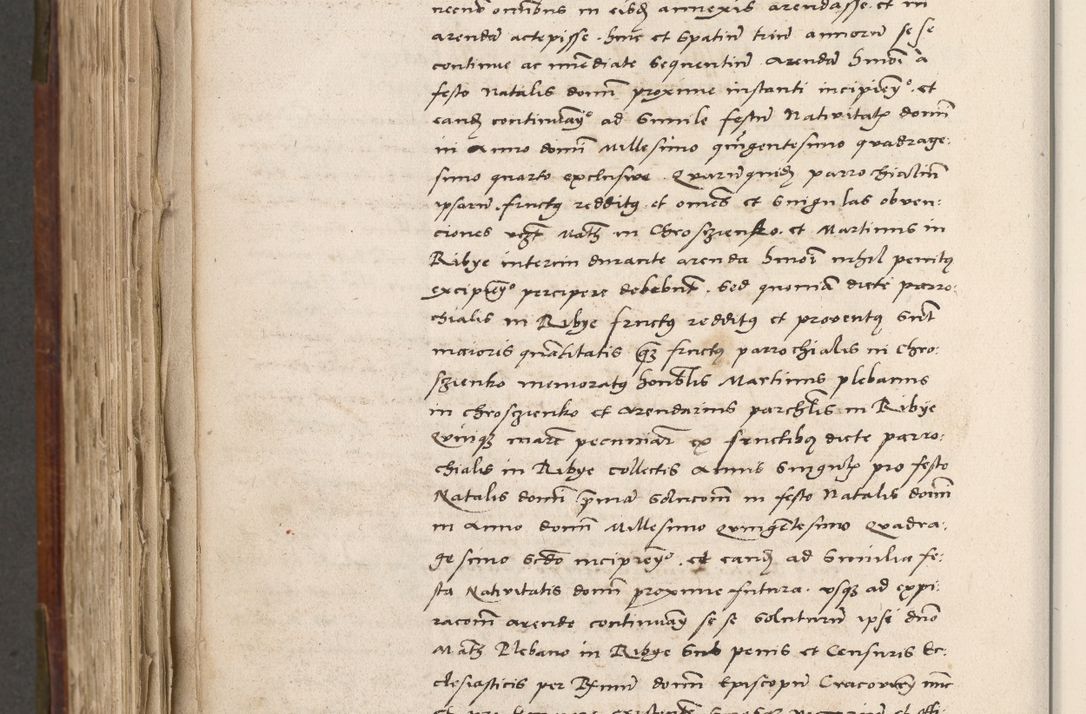 neend omnibus in eisd annexis arendasse et in
arenda accepisse. hinc et spatiu triu annoru se se
continue ac immediate sequentiu Arenda hmoi a
festo Natalis domi proxime instanti incipien. et
eand continuan ad simile festu Nativitat domi
in Anno domi Millesimo quingentesimo quadrage:
simo quarto exclusive. Quaruquid parrochialiu
ipsaru. fructus redditus et omes et singulas obven:
ciones vczt Math in Chroszienko. et Martinus in
Ribye interim durante arenda hmoi nihil penitus
excipien percipere debebunt. Sed quoniam dicte parro:
chialis in Ribye fructus redditus et proventus sunt
maioris quantitatis qz fructus parrochialis in Chro:
szienko memoratus honblis Martinus plebanus
in Chroszienko et Arendarius parchlis in Ribye
Quinqz marc pecuniar ex fructibus dicte parro:
chialis in Ribye collectis Annis singulis pro festo
Natalis domi prima solucom in festo Natalis domi
in Anno domi Millesimo Quingetesimo Quadra:
gesimo scdo incipien. et eand ad similia fe:
sta Nativitatis domi proxime futura. usqz ad expi:
racom arende continuan se se soluturu ipsi dno
Math Plebano in Ribye sub penis et Censuris Ec:
clesiasticis per R. dnum domi Episcopu Cracovien nunc